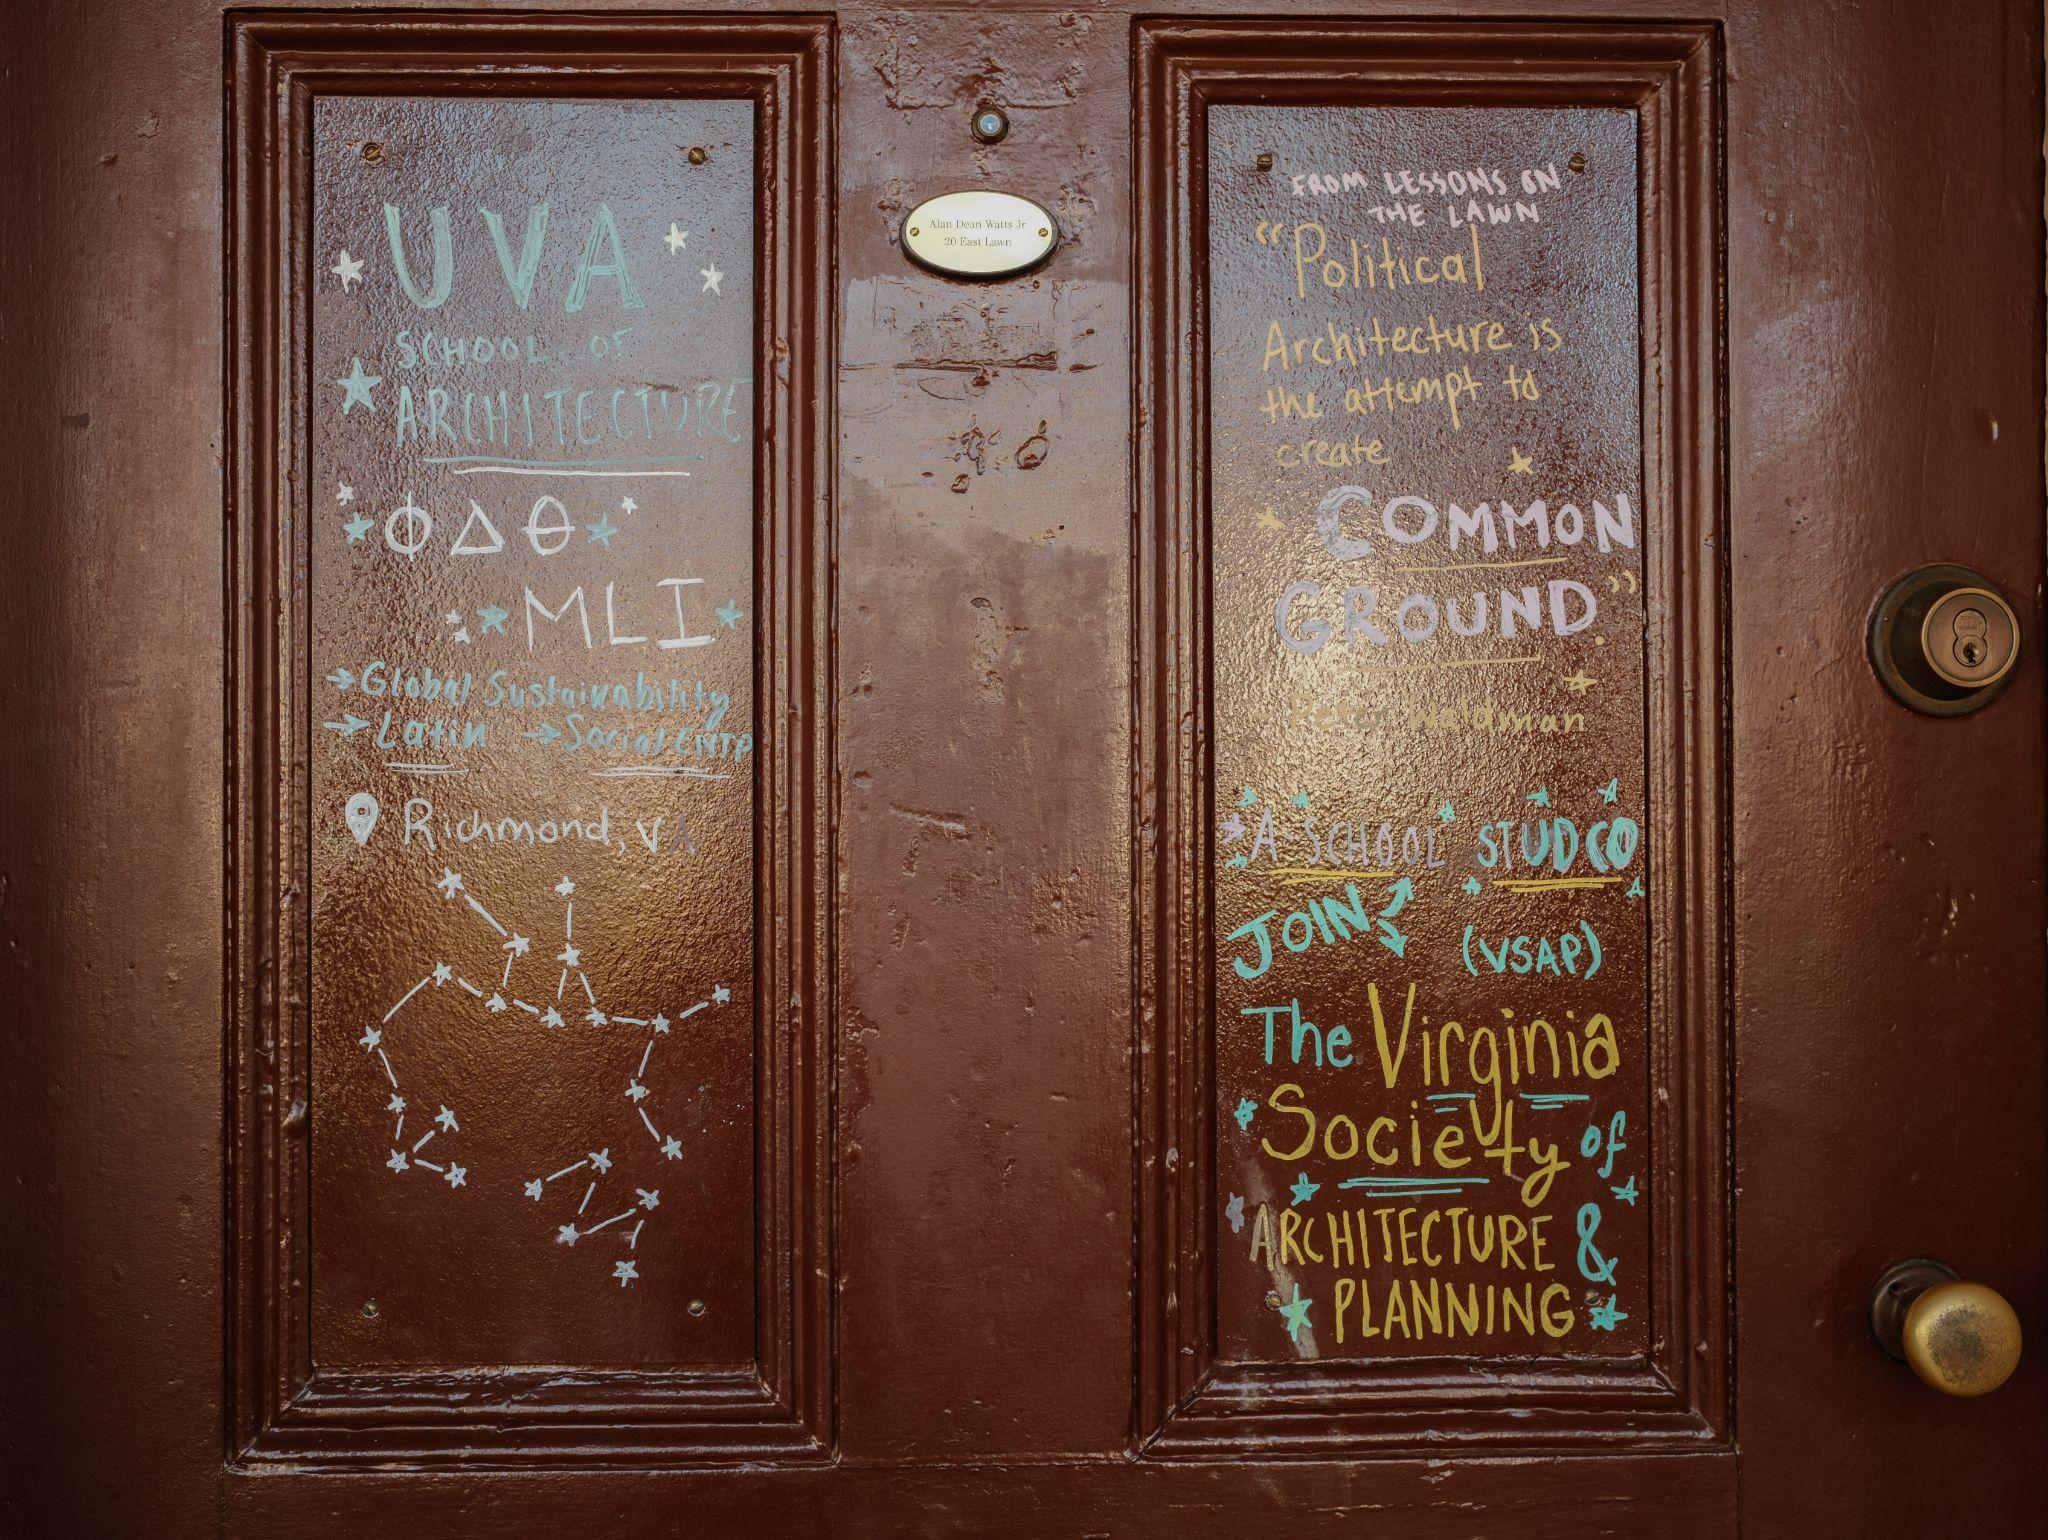 UVA
SCHOOL OF
ARCHITECTURE
ΦΔΘ
MLI
→Global Sustainability
→Latin →Social ENTP
Richmond, VA
Alan Dean Watts Jr.
20 East Lawn
FROM LESSONS ON
THE LAWN
“Political
Architecture is
the attempt to
create
COMMON
GROUND”
- Peter Waldman
A-SCHOOL STUDCO
JOIN
(VSAP)
The Virginia
Society of
ARCHITECTURE &
PLANNING